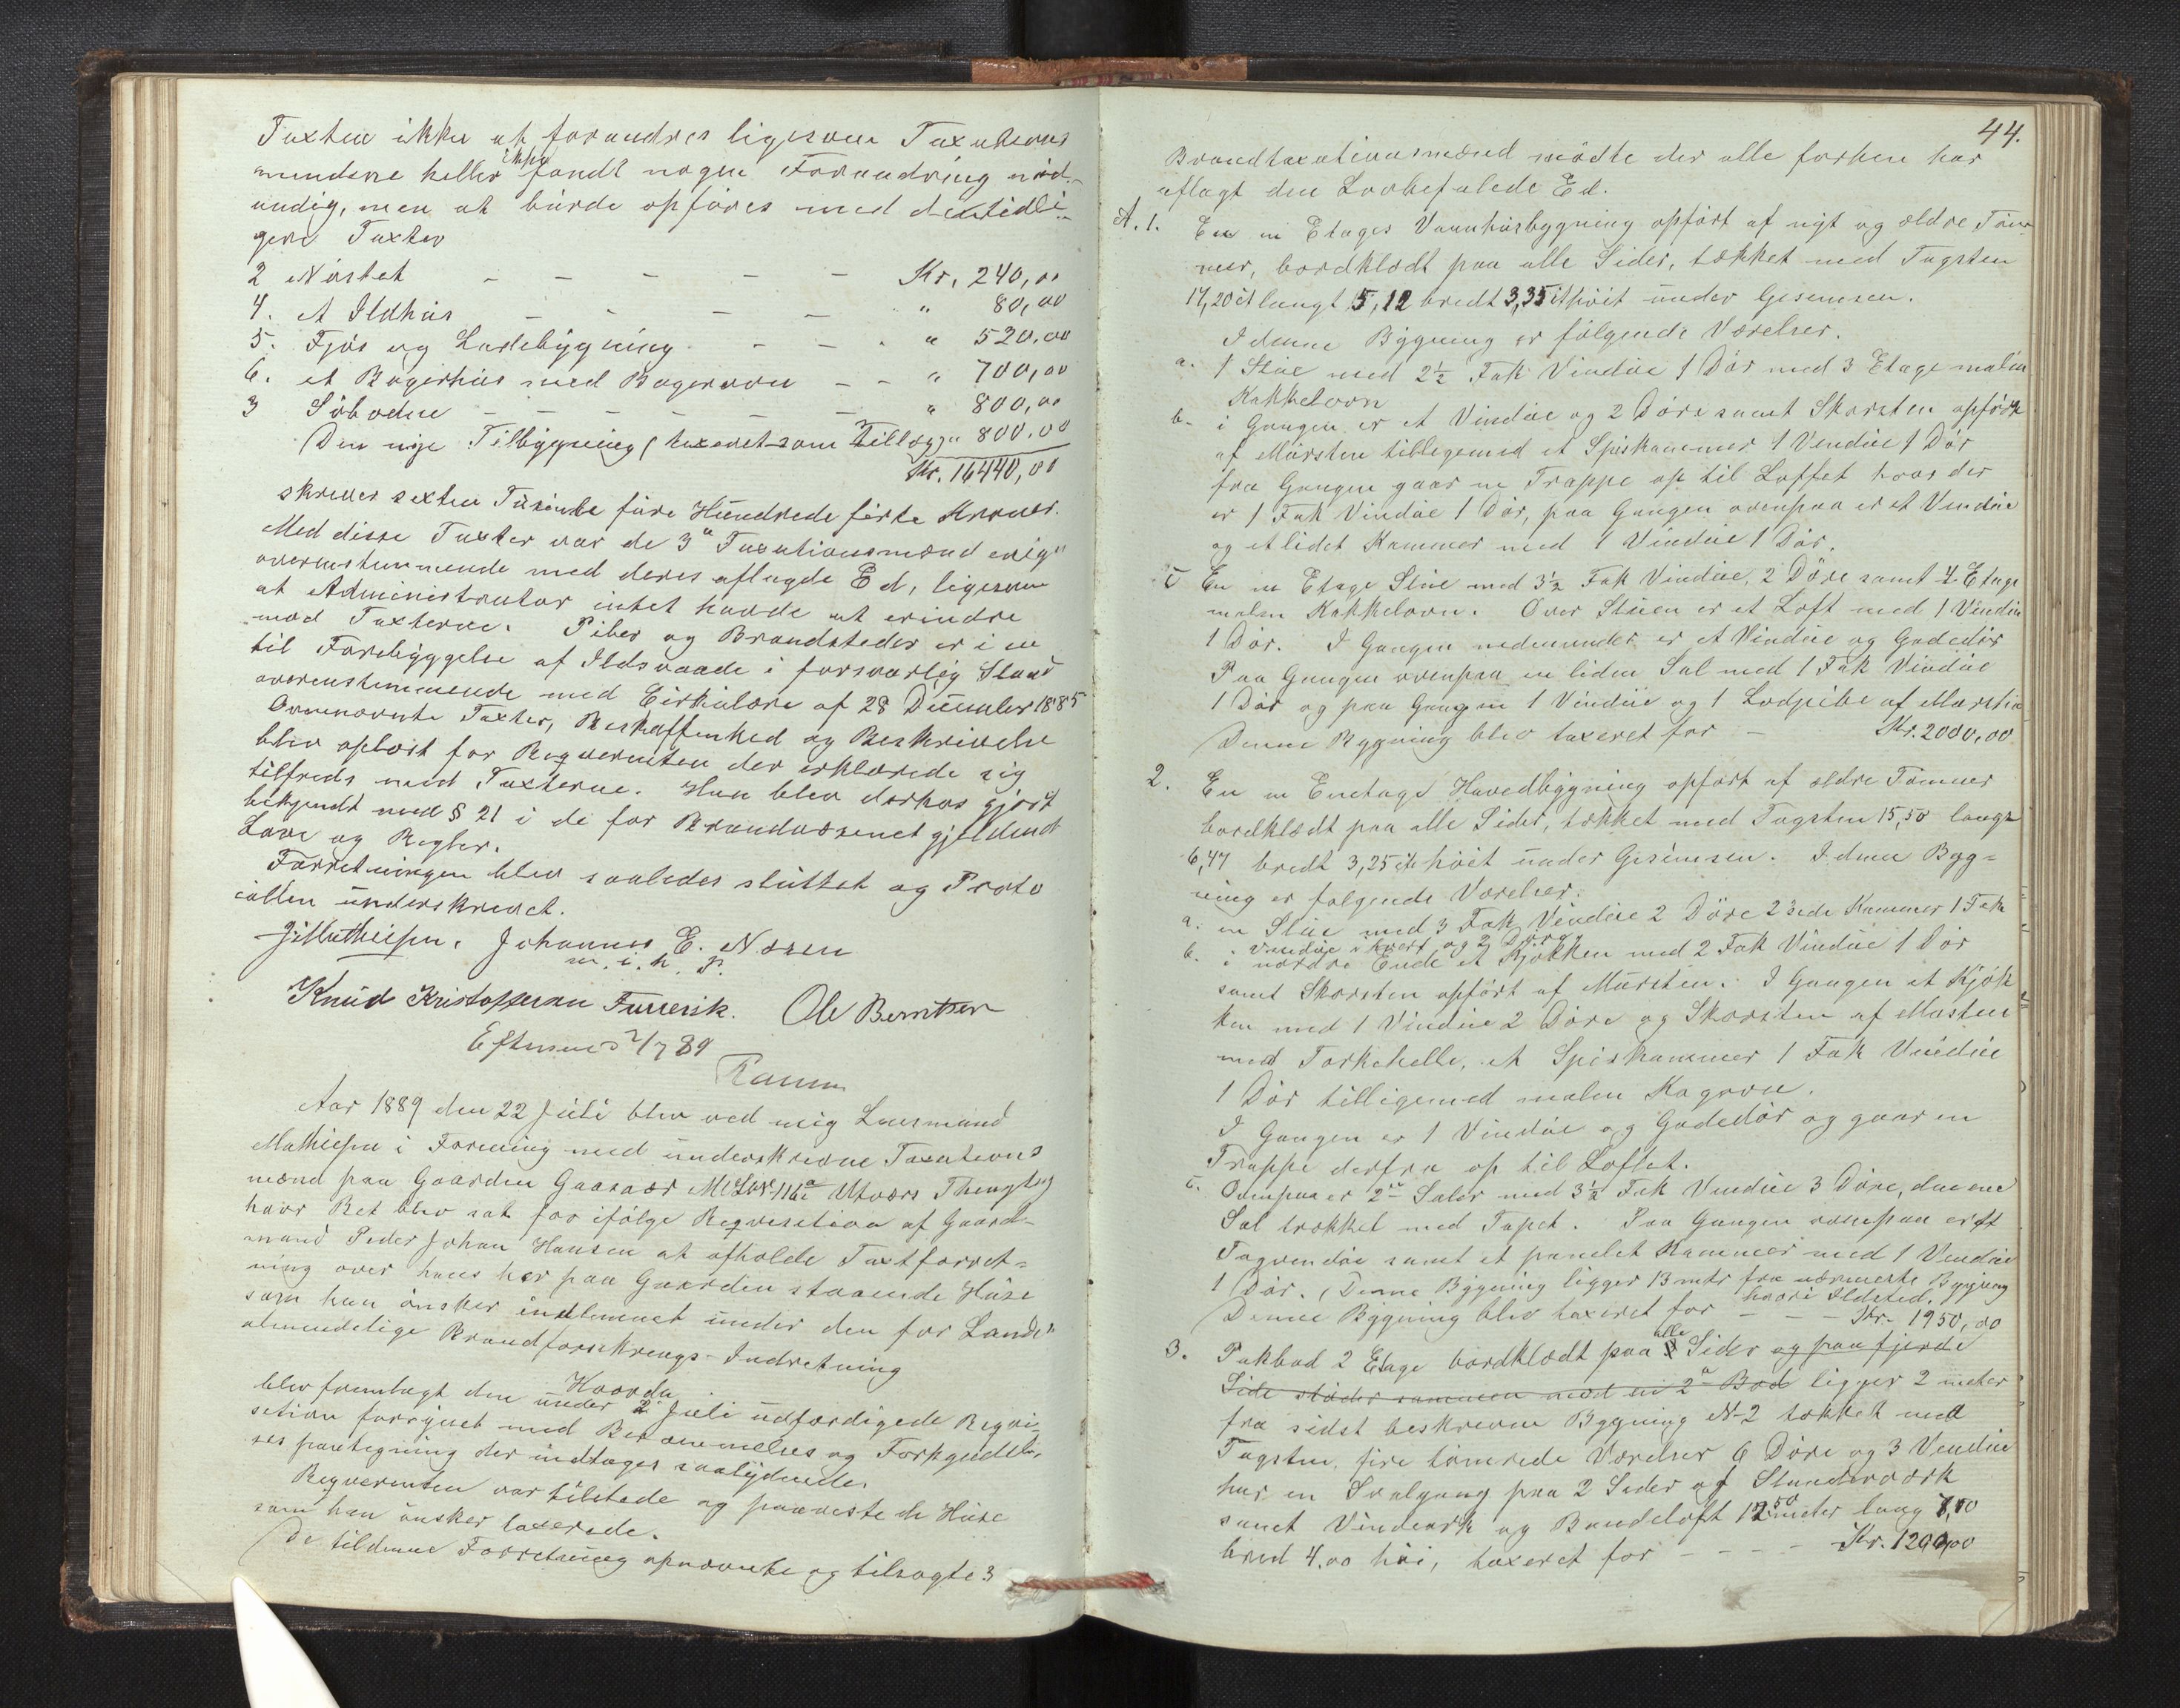 Taxten ikke at forandres ligesom Taxations
mændene heller ikke fandt nogen Forandring nød-
vendig, men at burde opføres med de tidli-
gere Taxter
2 Nøstet - - - - - Kr. 240,00
4. et Ildhus - - - - " 80,00
5. Fjøs og Ladebygning - - - " 520,00
6. et Bagerhus med Bagerovn - - " 700,00
3 Søboden - - - - - " 800,00
Den nye Tilbygning (taxeret som Tillæg) " 800,00
Kr. 16440,00
skriver sexten Tusinde fire Hundrede førti Kroner.
Med disse Taxter var de 3de Taxationsmænd enige
overenstemmende med deres aflagde Ed, ligesom
at Administrator intet havde at erindre
mod Taxterne. Piber og Brandsteder er i en
til Forebyggelse af Ildsvaade i forsvarlig Stand
overenstemmende med Cirkulære af 28 December 1885
Ovennævnte Taxter, Beskaffenhed og Beskrivelse
blev oplæst for Reqvirenten der erklærede sig
tilfreds med Taxterne. Han blev derhos gjort
bekjendt med § 21 i de for Brandvæsenet gjeldende
Love og Regler.
Forretningen blev saaledes sluttet og Proto
collen underskrevet.
JMathiesen. Johannes E. Nosen
m. i. h. P.
Knud Kristoffersen Furresik. Ole Berntsen
Eftersees 2/7 89
Aar 1889 den 22 Juli blev ved mig Lensmand
Mathiesen i Forening med underskrevne Taxations
mænd paa Gaarden Gaasvær M L No 116a Utvær Thinglag
hvor Ret blev sat for ifølge Reqvisition af Gaard-
mand Peder Johan Hansen at afholde Taxtforret-
ning over hans her paa Gaarden staaende Huse
som han ønsker indlemmet under den for Landets
almindelige Brandforsikrings-Indretning
Hvorda
blev fremlagt den under 2 Juli udfærdigede Reqvi-
sition forsynet med Berammelses og Forkyndel-
ses paategning der indtages saalydende
Reqvirenten var tilstede og paaviste de Huse
som han ønsker taxerede.
De til denne Forretning opnævnte og tilsagte 3
44.
Brandtaxationsmænd mødte der alle forhen har
aflagt den Lovbefalede Ed.
A. 1. En en Etages Vaanhusbygning opført af nyt og ældre Tøm-
mer, bordklædt paa alle Sider, tækket med Tagsten
17,20 ct langt 5,12 bredt 3,35 ct høit under Gesemsen.
I denne Bygning er følgende Værelser.
a. 1 Stue med 2½ Fak Vindue 1 Dør med 3 Etage malm
Kakkelovn
b. i Gangen er et Vindue og 2 Døre samt Skorsten opført
af Mursten tilligemed et Spiskammer 1 Vindue 1 Dør
fra Gangen gaar en Trappe op til Loftet hvor der
er 1 Fak Vindue 1 Dør, paa Gangen ovenpaa er et Vindue
og et lidet Kammer med 1 Vindue 1 Dør.
c En en Etage Stue med 3½ Fak Vindue, 2 Døre samt 4 Etage
malm Kakkelovn. Over Stuen er et Loft med 1 Vindue
1 Dør. I Gangen nedenunder er et Vindue og Gadedør
Paa Gangen ovenpaa en liden Sal med 1 Fak Vindue
1 Dør og paa Gangen 1 Vindue og 1 Lodpibe af Mursten
Denne Bygning blev taxeret for - Kr. 2000,00
2. En en Enetage Hovedbygning opført af ældre Tømmer
bordklædt paa alle Sider, tækket med Tagsten 15,50 langt
6,47 bredt 3,25 ct høit under Gesimsen. I denne Byg-
ning er følgende Værelser.
a. en Stue med 3 Fak Vindue 2 Døre 2 sede Kammer 1 Fak
Vindue i hvert og 2 Døre
b. i nordre Ende et Kjøkken med 2 Fak Vindue 1 Dør
samt Skorsten opført af Mursten. I Gangen et Kjøk
ken med 1 Vindue 2 Døre og Skorsten af Musten
med Tørkehelle, et Spiskammer 1 Fak Vindue
1 Dør tilligemed malm Kagovn.
I Gangen er 1 Vindue og Gadedør og gaar en
Trappe derfra op til Loftet.
c. Ovenpaa er 2de Saler med 3½ Fak Vindue 3 Døre, den ene
Sal trækket med Tapet. Paa Gangen ovenpaa er et
Tagvindue samt et panelet Kammer med 1 Vindue
1 Dør. (Denne Bygning ligger 13 mtr fra nærmeste Bygning
hvori Ildsted.
Denne Bygning blev taxeret for - - - Kr. 1950,00
3. Pakbod 2 Etage bordklædt paa alle Sider og paa fjerde
Side støder sammen med en 2de Bod ligger 2 meter
fra sidst beskrevne Bygning N-2 tækket med
Tagsten, fire tømrede Værelser 6 Døre og 3 Vindue
har en Svalgang paa 2 Sider af Standerværk
samt Vindeark og Bandeloft 12,50 meter lang 7,10
bred 4,00 høi, taxeret for - - - - Kr. 1200,00